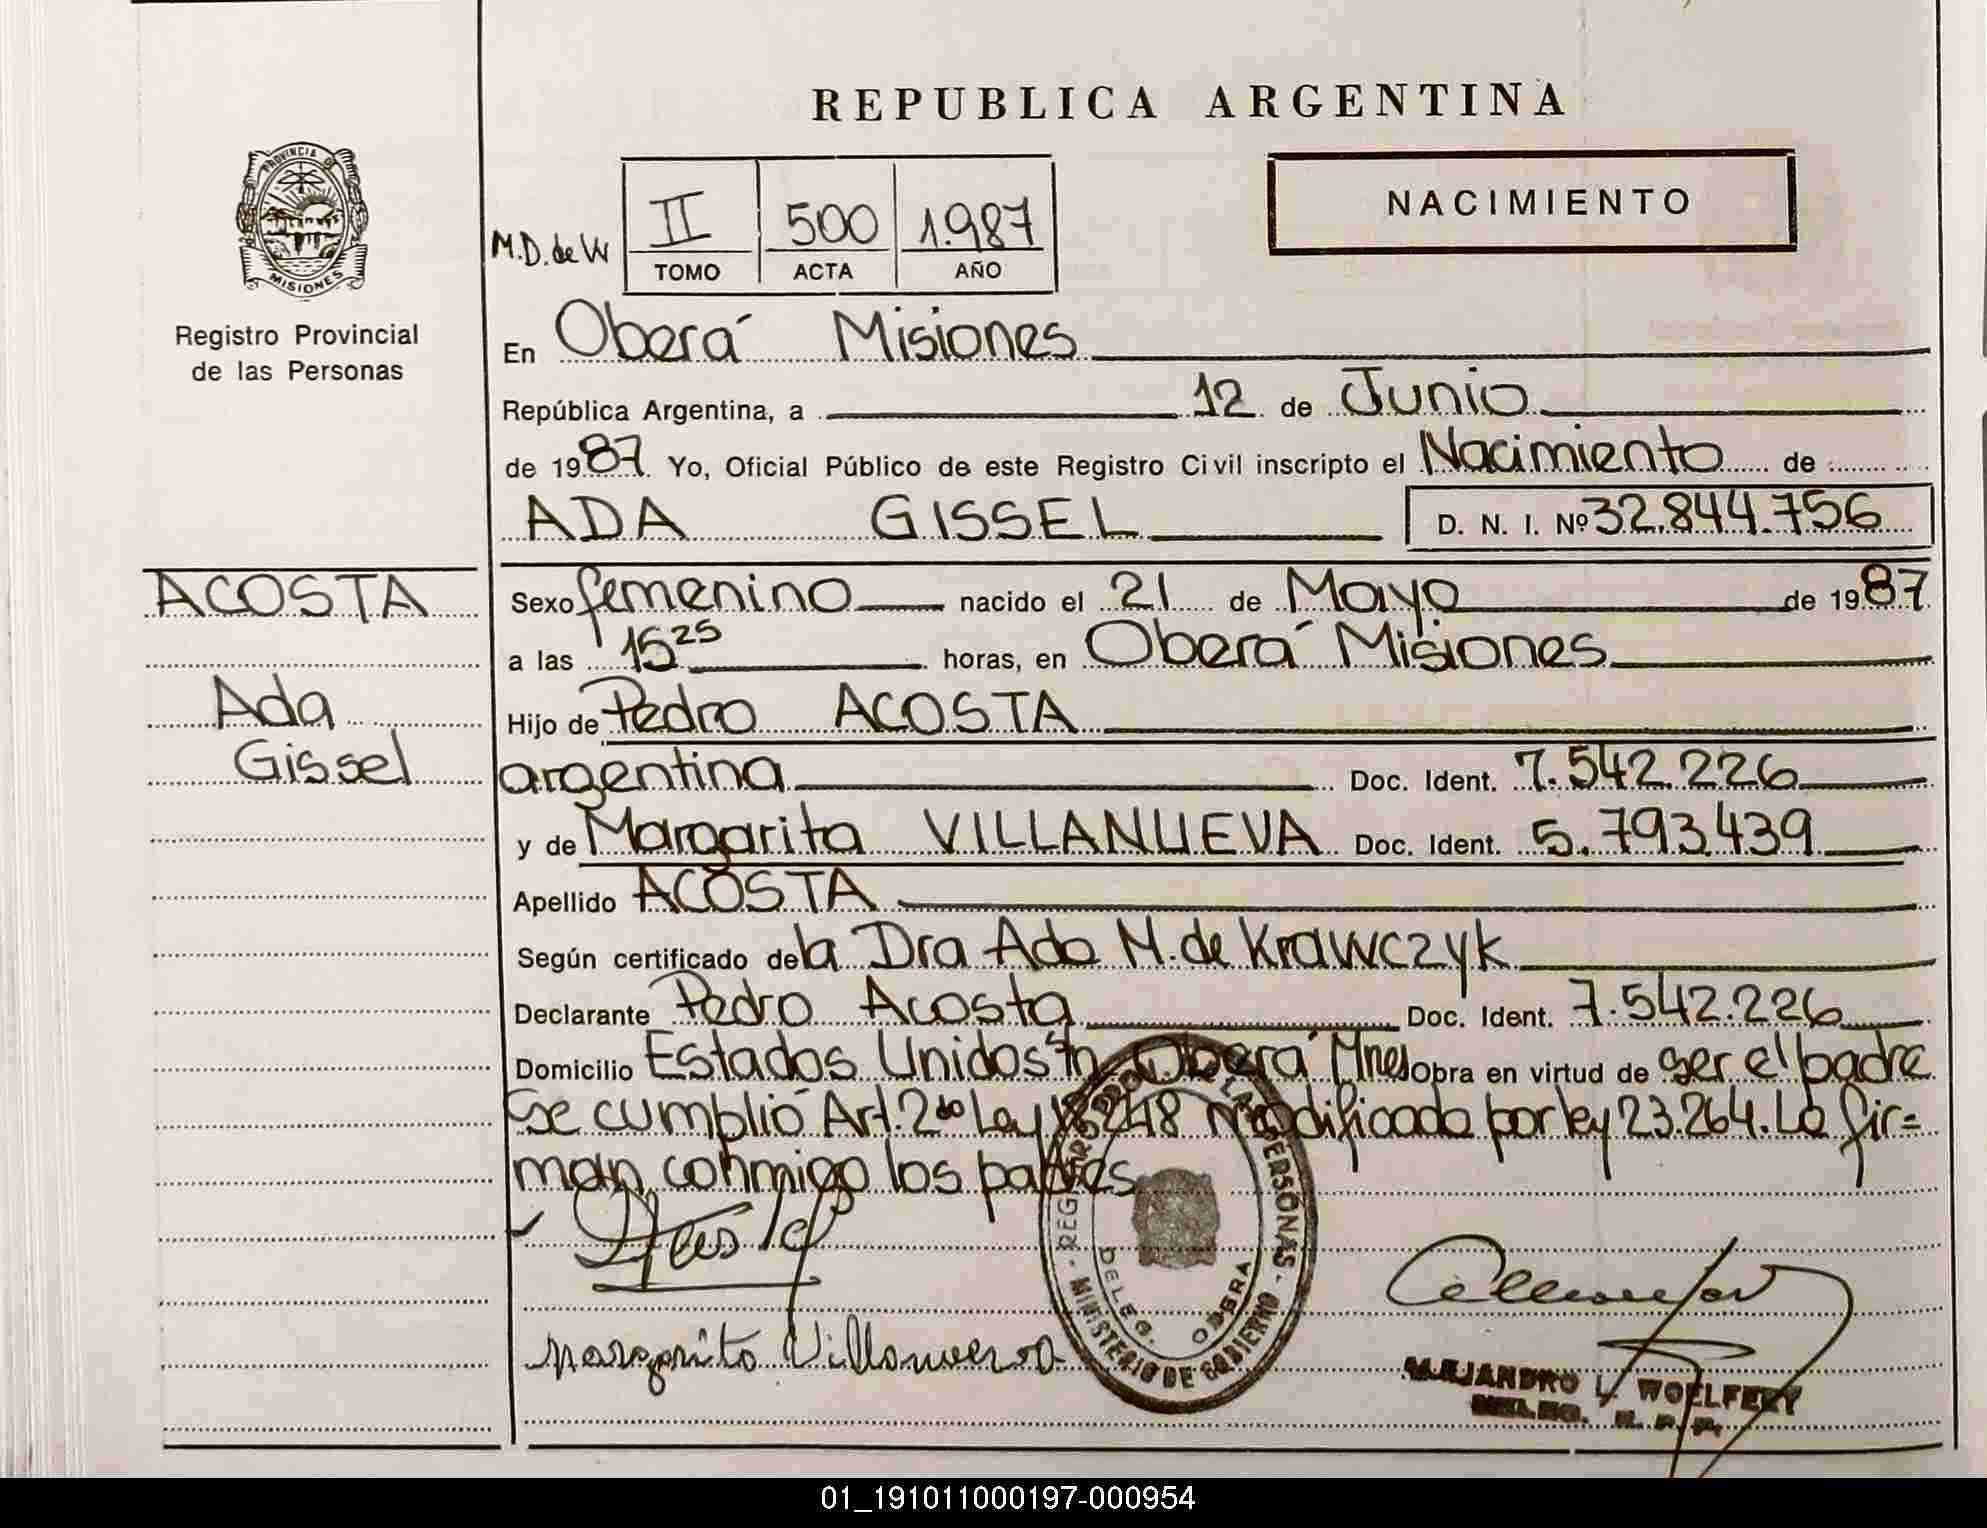 REPUBLICA ARGENTINA
NACIMIENTO
PROVINCIA DE
MISIONES
Registro Provincial
de las Personas
M.D. de W
II 500 1.987
TOMO ACTA AÑO
En Oberá Misiones
República Argentina, a 12 de Junio
de 1987. Yo, Oficial Público de este Registro Civil inscripto el Nacimiento de
ADA GISSEL D. N. I. Nº 32.844.756
ACOSTA
Ada
Gissel
Sexo femenino nacido el 21 de Mayo de 1987
a las 15 25 horas, en Oberá Misiones
Hijo de Pedro ACOSTA
argentina Doc. Ident. 7.542.226
y de Margarita VILLANUEVA Doc. Ident. 5.793.439
Apellido ACOSTA
Según certificado de la Dra Ada M. de Krawczyk
Declarante Pedro Acosta Doc. Ident. 7.542.226
Domicilio Estados Unidos s/n Oberá Mnes Obra en virtud de ser el padre
Se cumplió Art. 2do Ley 18.248 modificada por ley 23.264. La fir=
man conmigo los padres
REGISTRO PROV. DE LAS PERSONAS - MINISTERIO DE GOBIERNO -
DELEG. OBERA
Margarita Villanueva
ALEJANDRO L. WOELFERT
DELEG. R. P. P.
01_191011000197-000954